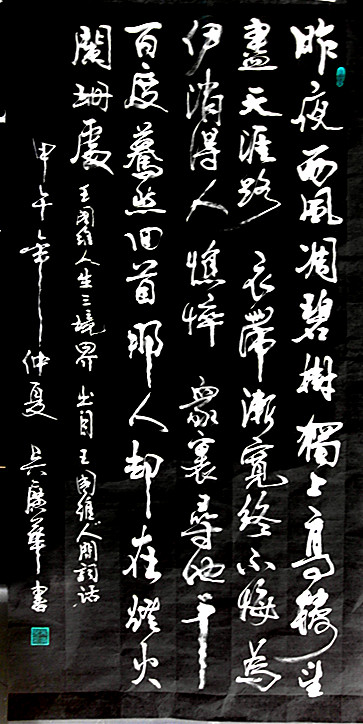 昨夜西風凋碧樹獨上高樓望
盡天涯路 衣帶漸寬終不悔為
伊消得人憔悴 眾裏尋他千
百度驀然回首那人却在燈火
闌珊處 王國維人生三境界 出自王國維人間詞話
甲午年仲夏 吳廣華書